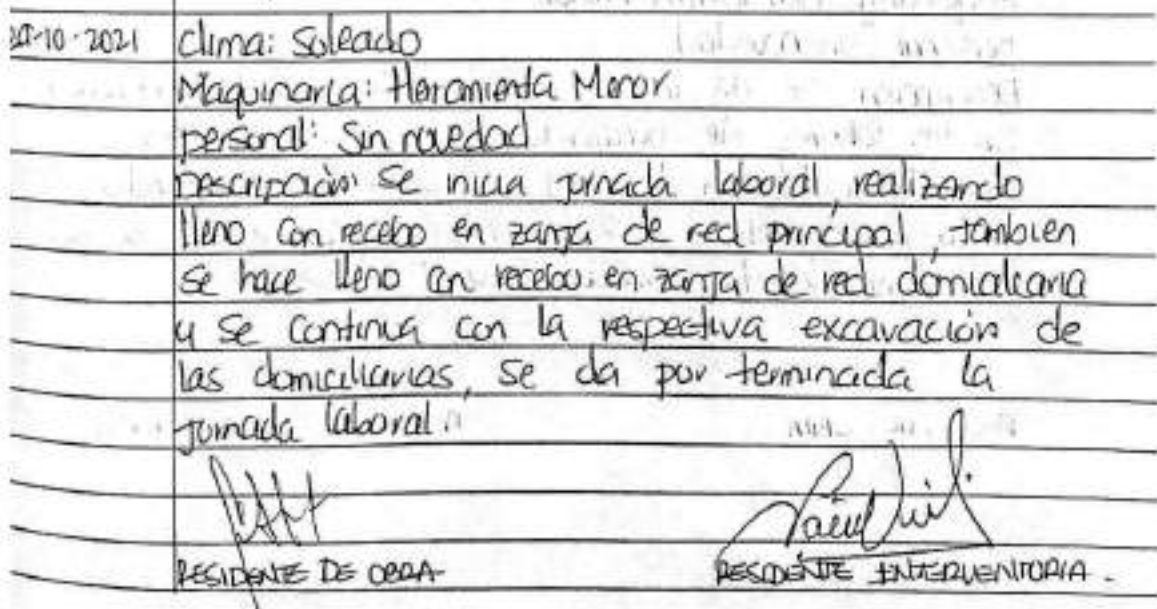 -10-2021 Clima: Soleado
Maquinaria: Herramienta Menor
personal: Sin novedad
Descripción: Se inicia jornada laboral realizando
lleno con recebo en zanja de red principal, tambien
se hace lleno con recebo en zanja de red domiciliaria
y se continua con la respectiva excavación de
las domiciliarias, se da por terminada la
jornada laboral.
RESIDENTE DE OBRA RESIDENTE INTERVENTORIA.